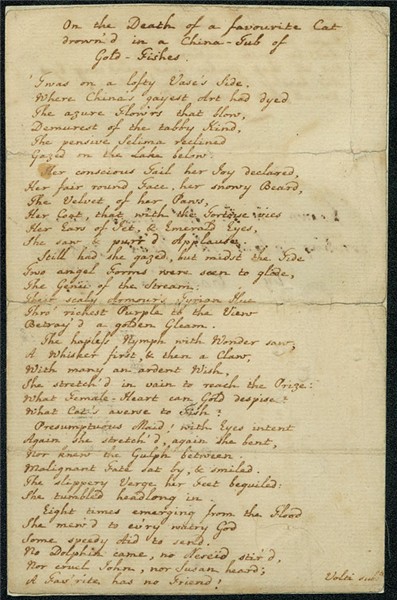 On the Death of a favourite Cat
drown'd in a China-Tub of
Gold-Fishes.
'Twas on a lofty Vase's Side,
Where China's gayest Art had dyed
The azure Flow'rs that blow,
Demurest of the tabby Kind,
The pensive Selima reclined
Gazed on the Lake below.
Her conscious Tail her Joy declared,
Her fair round Face, her snowy Beard,
The Velvet of her Paws,
Her Coat, that with the Tortoise vies
Her Ears of Jet, & Emerald Eyes,
She saw & purr'd Applause.
Still had she gazed, but midst the Tide
Two angel Forms were seen to glide,
The Genii of the Stream:
Their scaly Armour's Tyrian Hue
Thro' richest Purple to the View
Betray'd a golden Gleam.
The hapless Nymph with Wonder saw,
A Whisker first, & then a Claw,
With many an ardent Wish,
She stretch'd in vain to reach the Prize:
What Female-Heart can Gold despise?
What Cat's averse to Fish?
Presumptuous Maid! with Eyes intent
Again she stretch'd, again she bent,
Nor knew the Gulph between.
Malignant Fate sat by, & smiled.
The slippery Verge her Feet beguiled:
She tumbled headlong in.
Eight times emerging from the Flood
She mew'd to ev'ry watry God
Some speedy Aid to send.
No Dolphin came, no Nereid stir'd,
Nor cruel John, nor Susan heard;
A Fav'rite has no Friend!
Volti